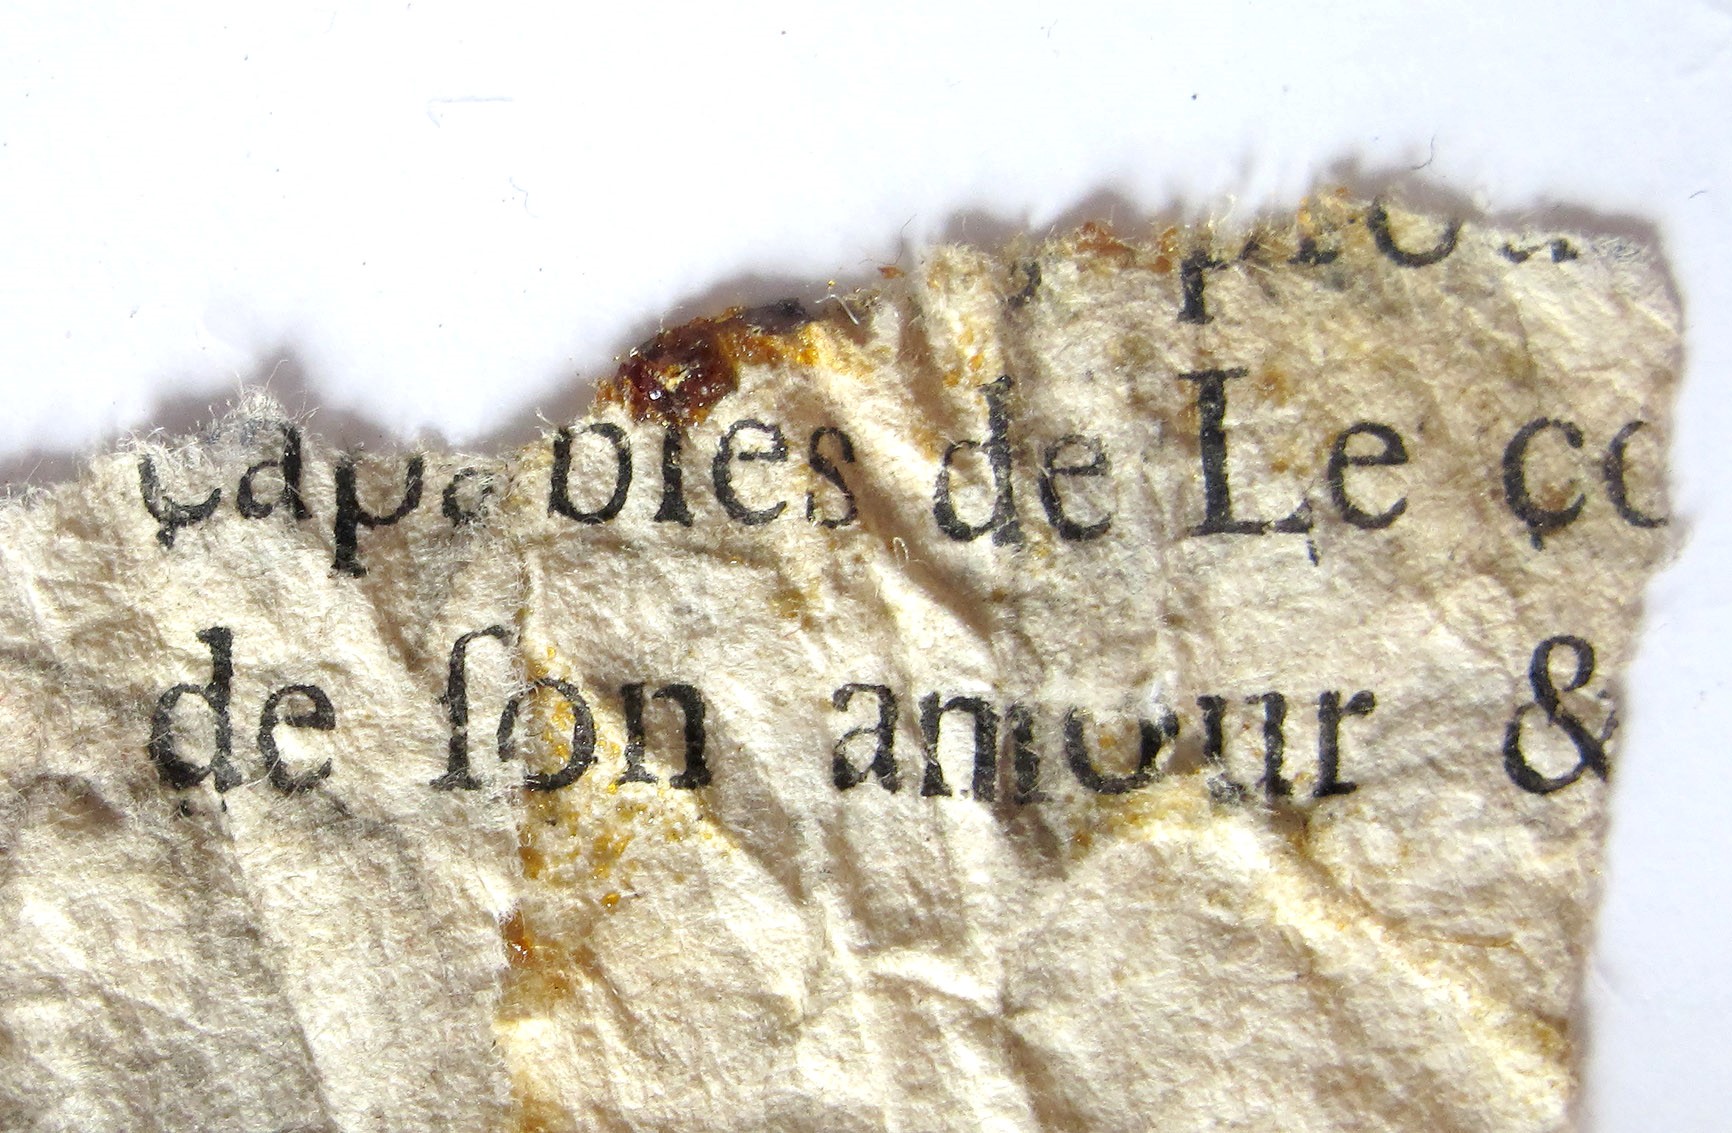 capables de Le co
de ſon amour &